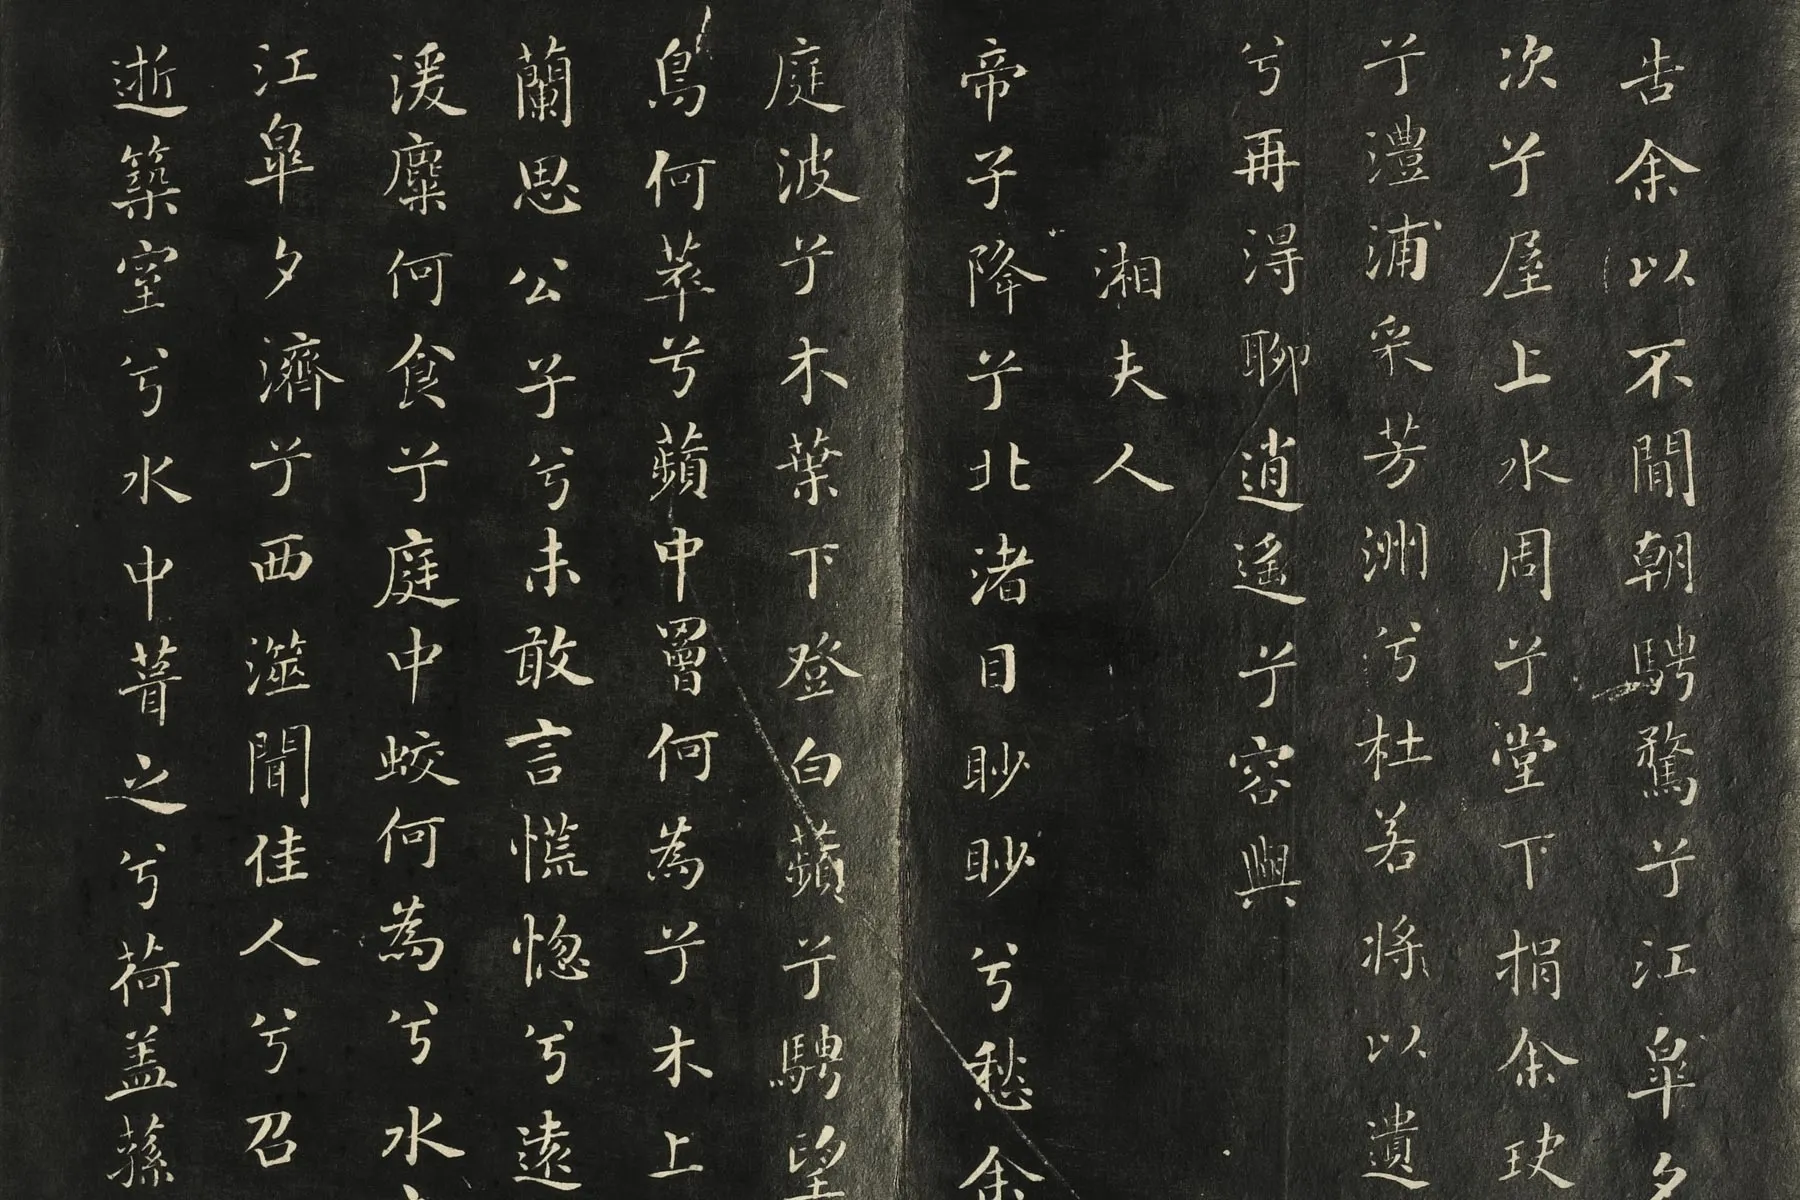 告余以不閒朝騁騖兮江皐夕
次兮屋上水周兮堂下捐余玦
兮澧浦采芳洲兮杜若將以遺
兮再得聊逍遙兮容與
湘夫人
帝子降兮北渚目眇眇兮愁余
庭波兮木葉下登白蘋兮騁望
鳥何萃兮蘋中罾何為兮木上
蘭思公子兮未敢言慌惚兮遠
湲麋何食兮庭中蛟何為兮水
江皐夕濟兮西澨聞佳人兮召
逝築室兮水中葺之兮荷盖蓀